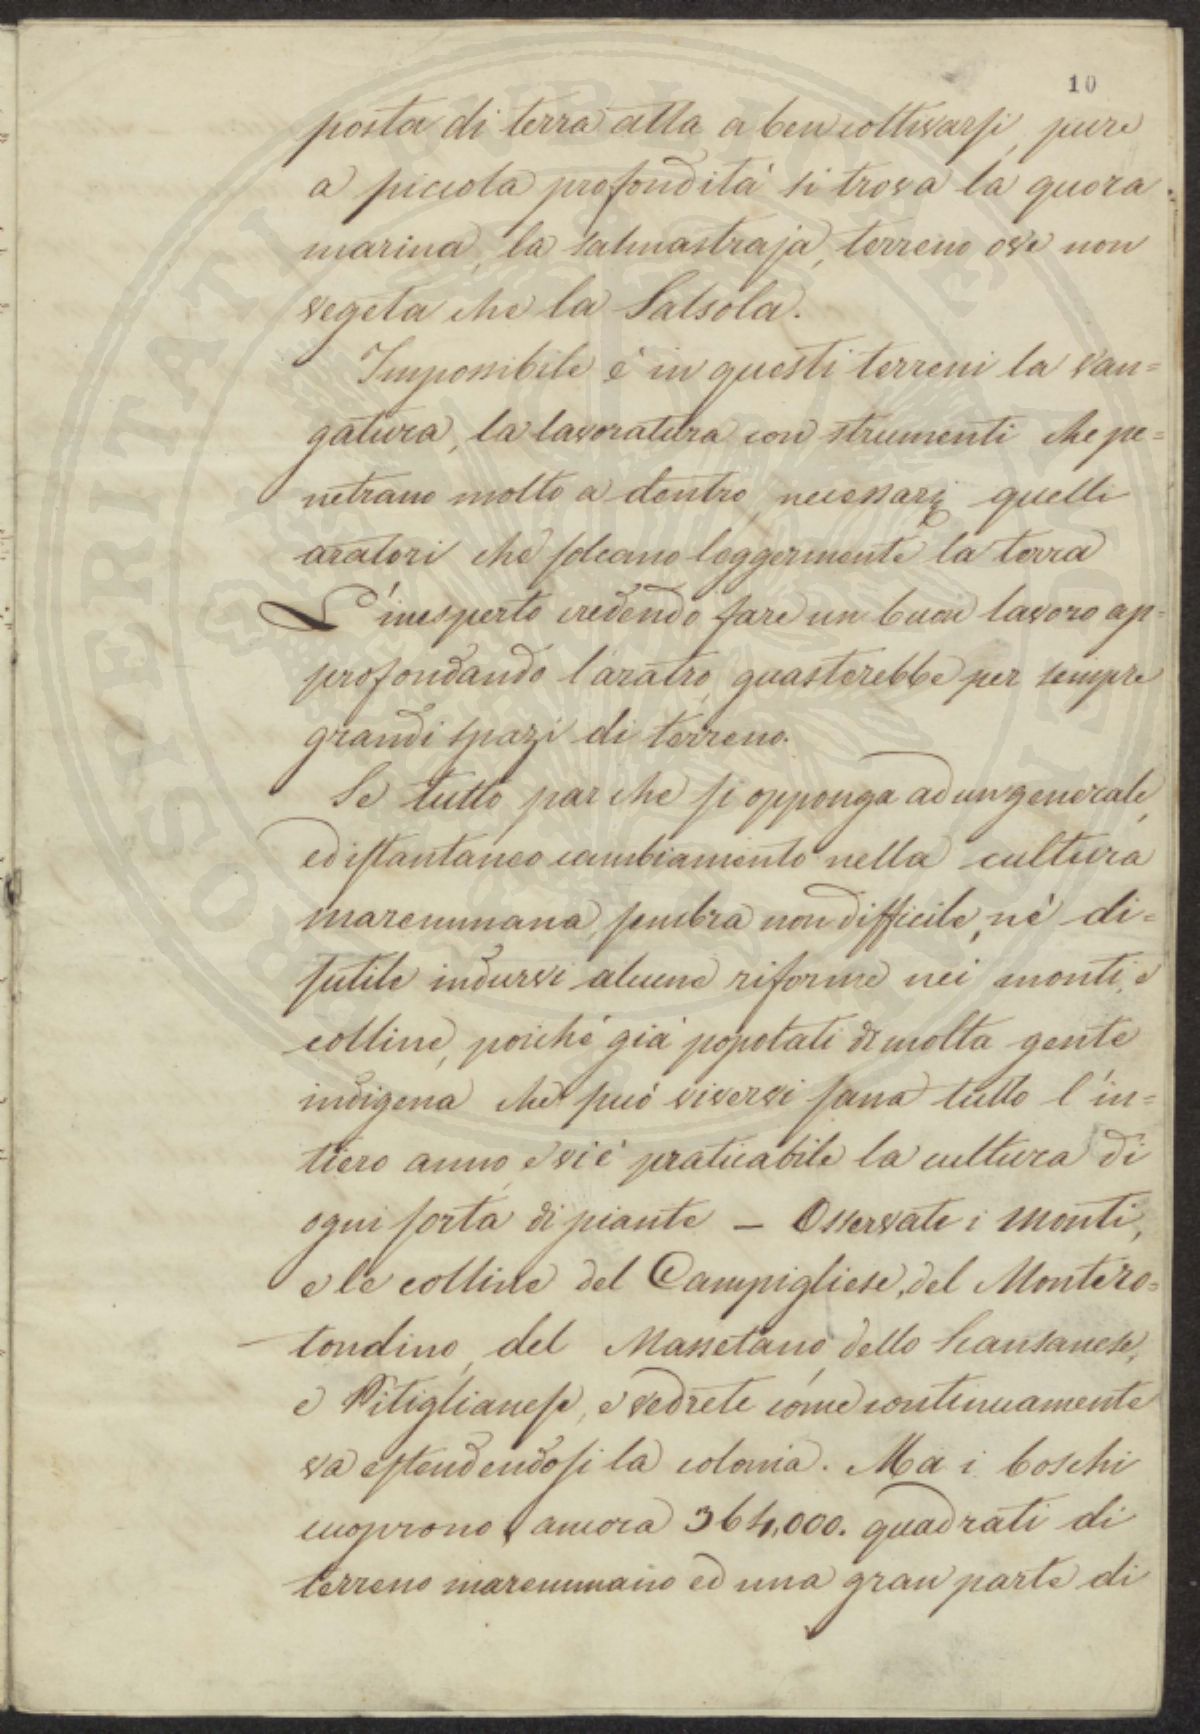 10
posta di terra atta a ben coltivarsi, pure
a piccola profondità si trova la quora
marina, la salmastraja, terreno ove non
vegeta che la Salsola.
Impossibile è in questi terreni la van=
gatura, la lavoratura con strumenti che pe=
netrano molto a dentro, necessarj quelli
aratori che solcano leggermente la terra
L'inesperto credendo fare un buon lavoro ap=
profondando l'aratro, guasterebbe per sempre
grandi spazi di terreno.
Se tutto par che si opponga ad un generale,
ed istantaneo cambiamento nella cultura
maremmana, sembra non difficile, nè di=
sutile indursi alcune riforme nei monti, e
colline, poichè già popolati di molta gente
indigena che può viversi sana tutto l'in=
tiero anno, e vi è praticabile la cultura di
ogni sorta di piante — Osservate i monti,
e le colline del Campigliese, del Montero=
tondino, del Massetano, dello Scansanese,
e Pitiglianese, e vedrete come continuamente
va estendendosi la colonia. Ma i boschi
cuoprono ancora 364,000. quadrati di
terreno maremmano ed una gran parte di
PROSPERITATI PUBLICAE